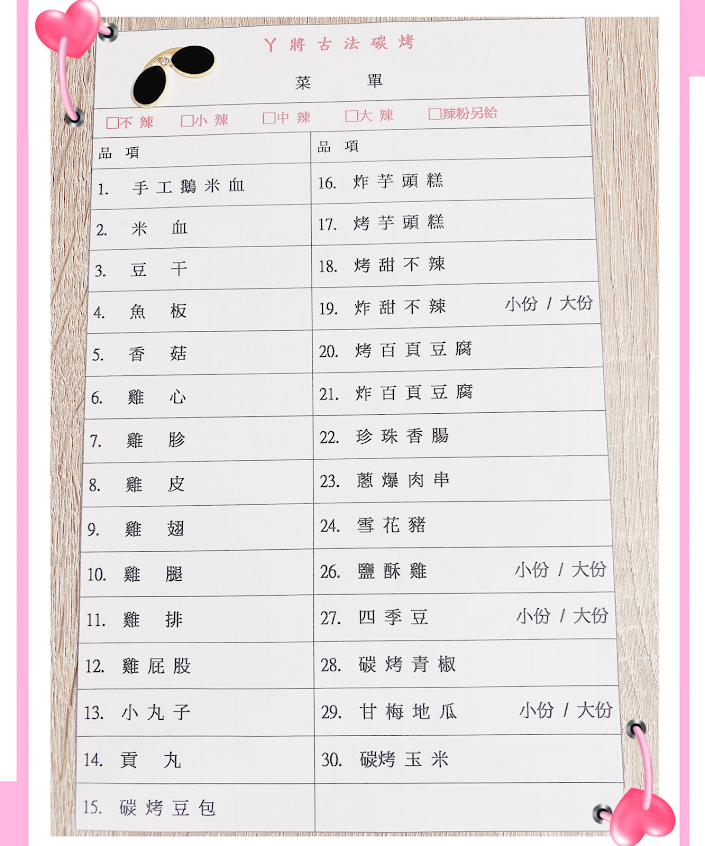 丫將古法碳烤
菜 單
□不辣 □小辣 □中辣 □大辣 □辣粉另給
品 項
1. 手工鵝米血
2. 米 血
3. 豆 干
4. 魚 板
5. 香 菇
6. 雞 心
7. 雞 胗
8. 雞 皮
9. 雞 翅
10. 雞 腿
11. 雞 排
12. 雞屁股
13. 小丸子
14. 貢 丸
15. 碳烤豆包
品 項
16. 炸芋頭糕
17. 烤芋頭糕
18. 烤甜不辣
19. 炸甜不辣 小份 / 大份
20. 烤百頁豆腐
21. 炸百頁豆腐
22. 珍珠香腸
23. 蔥爆肉串
24. 雪花豬
26. 鹽酥雞 小份 / 大份
27. 四季豆 小份 / 大份
28. 碳烤青椒
29. 甘梅地瓜 小份 / 大份
30. 碳烤玉米